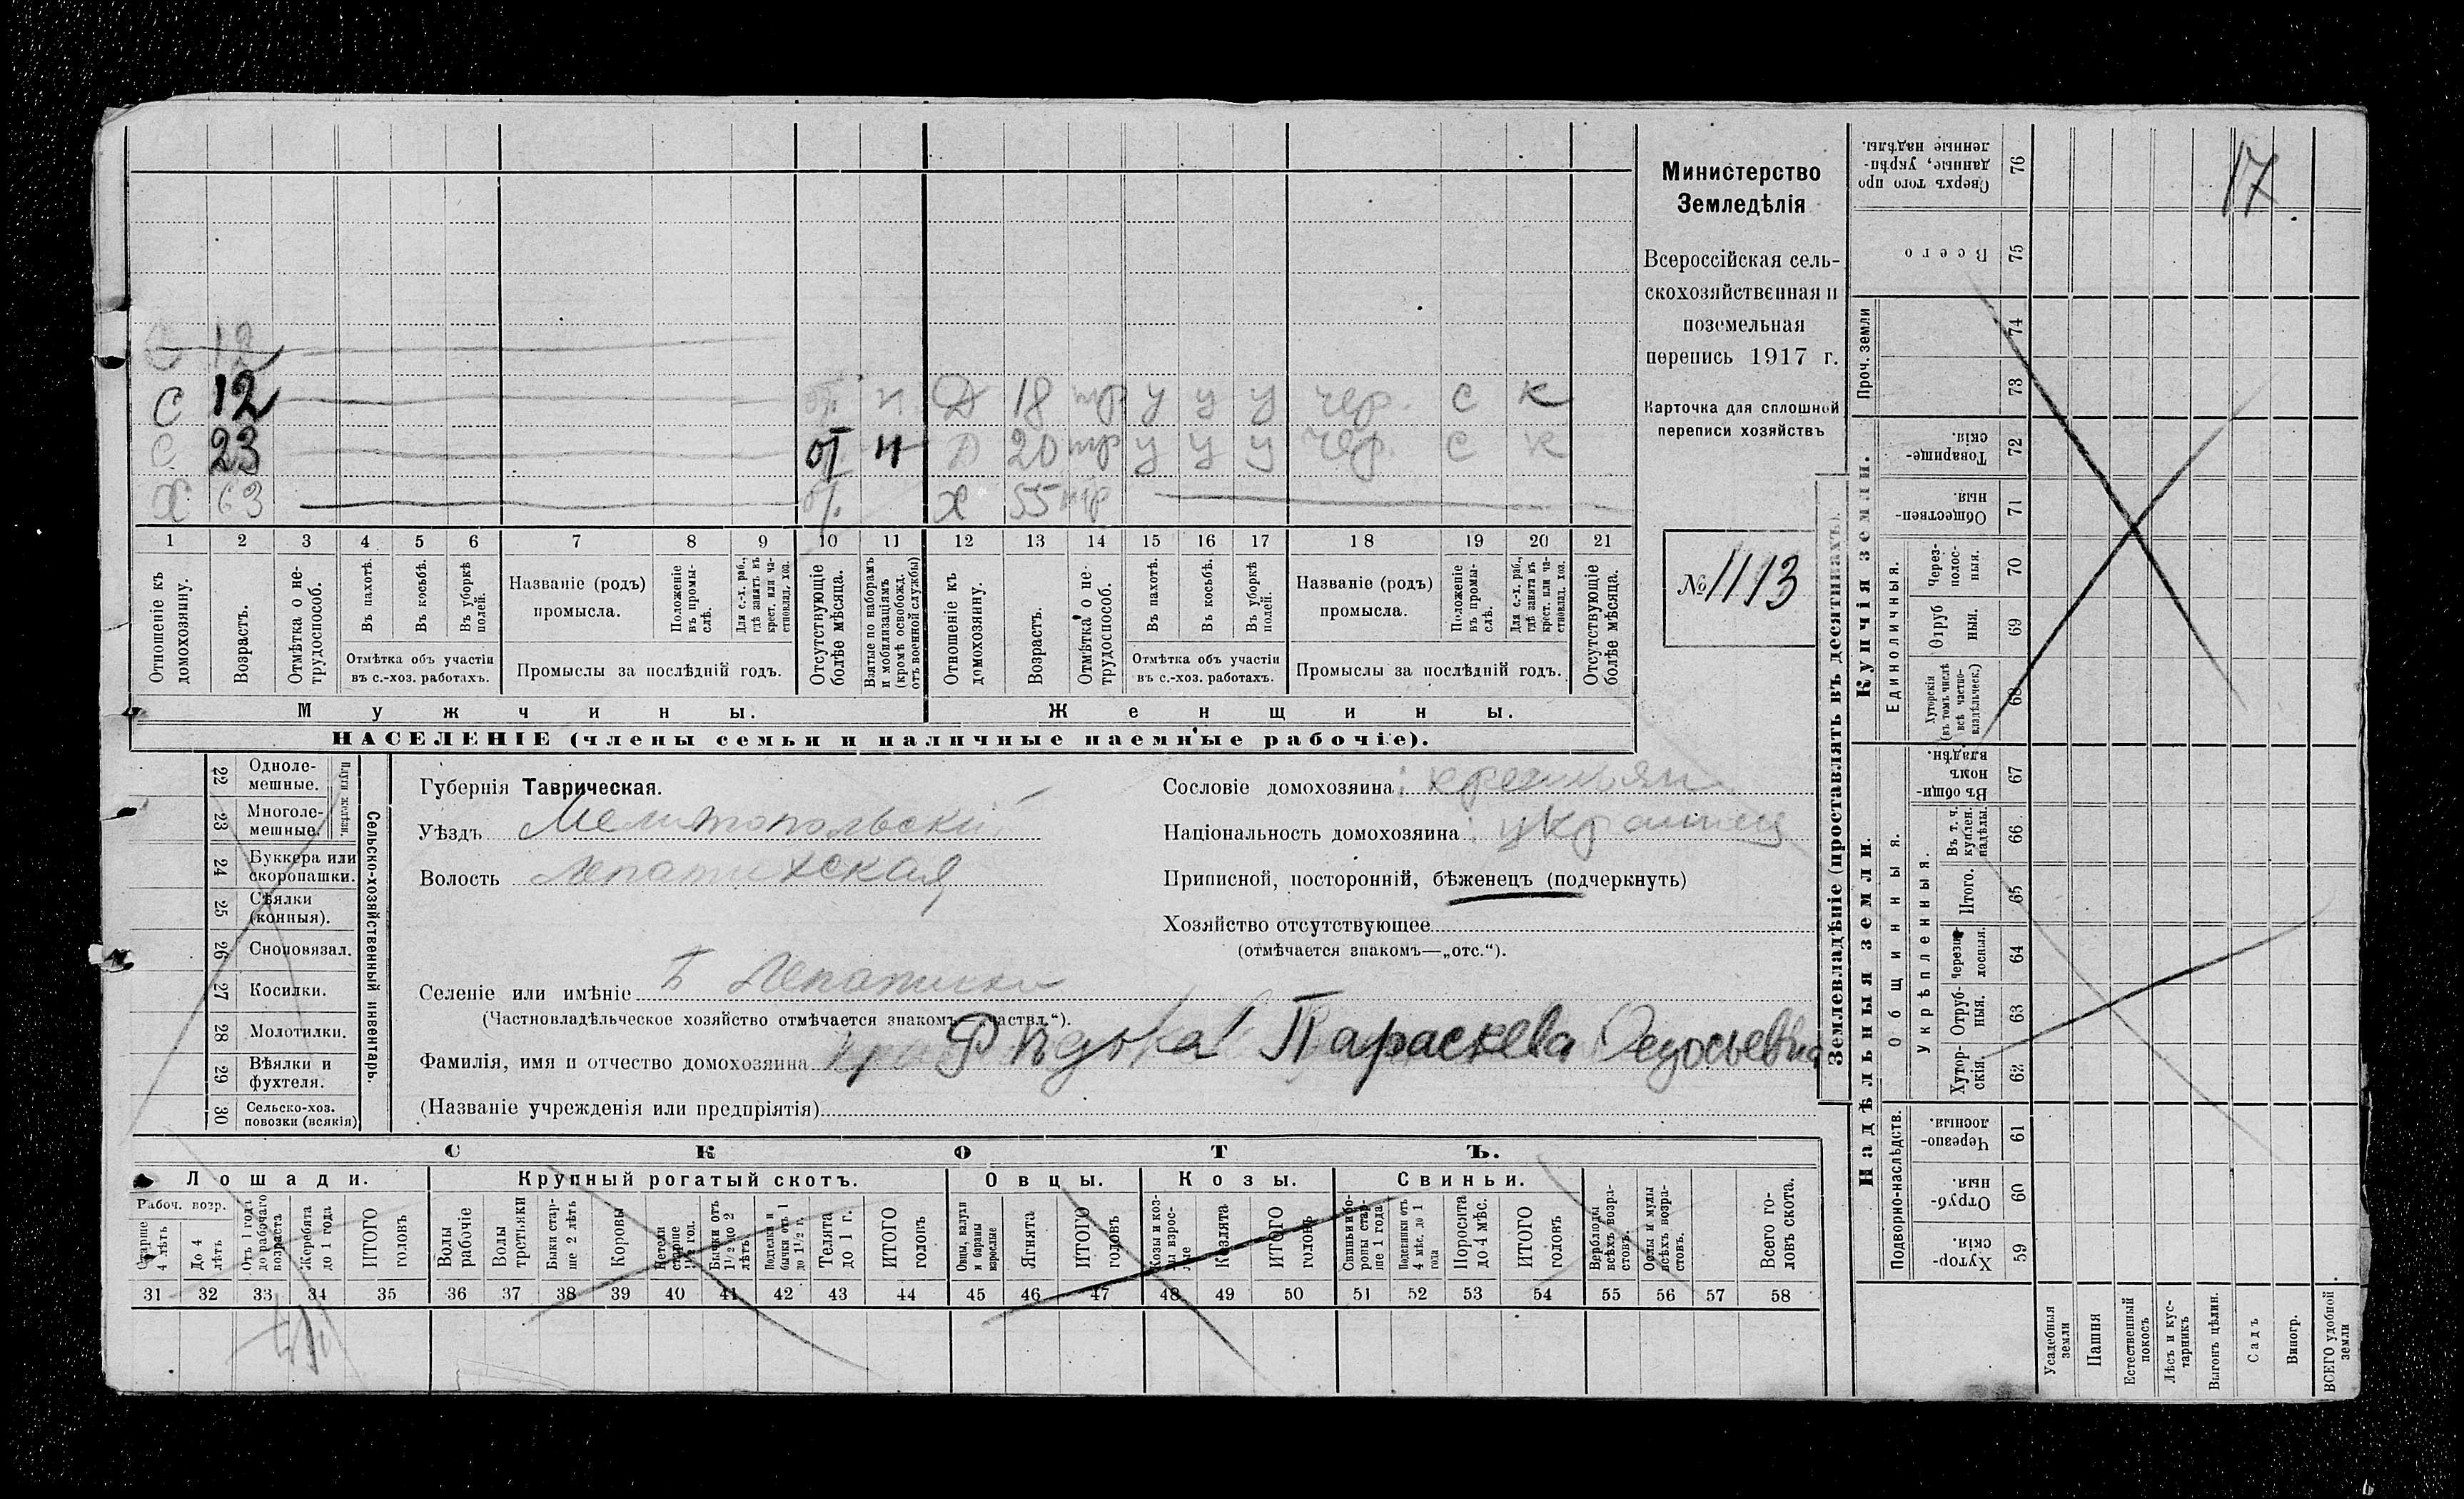 17
С 12
С 12 от. н. Д 18 тр у у у чер. с к
С 23 от н Д 20 тр у у у чер. с к
Х 63 от. Х 55 тр
1 2 3 4 5 6 7 8 9 10 11 12 13 14 15 16 17 18 19 20 21
Отношеніе къ домохозяину.
Возрастъ.
Отмѣтка о не-трудоспособ.
Въ пахотѣ.
Въ косьбѣ.
Въ уборкѣ полей.
Отмѣтка объ участіи въ с.-хоз. работахъ.
Названіе (родъ) промысла.
Положеніе въ промы-слѣ.
Для с.-х. раб., гдѣ занятъ въ крест. или ча-стновлад. хоз.
Промыслы за послѣдній годъ.
Отсутствующіе болѣе мѣсяца.
Взятые по наборамъ и мобилизаціямъ (кромѣ освобожд. отъ военной службы)
Отношеніе къ домохозяину.
Возрастъ.
Отмѣтка о не-трудоспособ.
Въ пахотѣ.
Въ косьбѣ.
Въ уборкѣ полей.
Отмѣтка объ участіи въ с.-хоз. работахъ.
Названіе (родъ) промысла.
Положеніе въ промы-слѣ.
Для с.-х. раб., гдѣ занята въ крест. или ча-стновлад. хоз.
Промыслы за послѣдній годъ.
Отсутствующіе болѣе мѣсяца.
Мужчины. Женщины.
НАСЕЛЕНІЕ (члены семьи и наличные наемные рабочіе).
Министерство
Земледѣлія
Всероссійская сель-
скохозяйственная и
поземельная
перепись 1917 г.
Карточка для сплошной
переписи хозяйствъ
№ 1113
Сельско-хозяйственный инвентарь.
Плуги желѣзн.
22 Одноле-мешные.
23 Многоле-мешные.
24 Буккера или скоропашки.
25 Сѣялки (конныя).
26 Сноповязал.
27 Косилки.
28 Молотилки.
29 Вѣялки и фухтеля.
30 Сельско-хоз. повозки (всякія)
Губернія Таврическая.
Уѣздъ Мелитопольскій
Волость Лепатихская
Сословіе домохозяина: крестьян
Національность домохозяина: украинец
Приписной, посторонній, бѣженецъ (подчеркнуть)
Хозяйство отсутствующее
(отмѣчается знакомъ—„отс.“).
Селеніе или имѣніе Б Лепатиха
(Частновладѣльческое хозяйство отмѣчается знакомъ „частвл.“).
Фамилія, имя и отчество домохозяина Параскева Федосьевна
(Названіе учрежденія или предпріятія)
СКОТЪ.
Лошади. Крупный рогатый скотъ. Овцы. Козы. Свиньи.
Рабоч. возр.
Старше 4 лѣтъ
До 4 лѣтъ
Отъ 1 года до рабочаго возраста
Жеребята до 1 года
ИТОГО головъ
Волы рабочіе
Волы третьяки
Быки стар-ше 2 лѣтъ
Коровы
Нетели старше 1½ год.
Бычки отъ 1½ до 2 лѣтъ
Подтелки и бычки отъ 1 до 1½ г.
Телята до 1 г.
ИТОГО головъ
Овцы, валухи и бараны взрослые
Ягнята
ИТОГО головъ
Козы и коз-лы взрос-лые
Козлята
ИТОГО головъ
Свиньи и бо-ровы стар-ше 1 года
Подсвинки отъ 4 мѣс. до 1 года
Поросята до 4 мѣс.
ИТОГО головъ
Верблюды всѣхъ возра-стовъ.
Ослы и мулы всѣхъ возра-стовъ.
Всего го-ловъ скота.
31 32 33 34 35 36 37 38 39 40 41 42 43 44 45 46 47 48 49 50 51 52 53 54 55 56 57 58
Землевладѣніе (проставлять въ десятинахъ).
Купчія земли.
Проч. земли
Единоличныя.
Надѣльныя земли.
Общинныя.
Укрѣпленныя.
Подворно-наслѣдств.
76 Сверхъ того про данные, укрѣп-ленные надѣлы.
75 Всего
74
73
72 Товарище-скія.
71 Обществен-ныя.
70 Через-полос-ныя.
69 Отруб ныя.
68 Хуторскія (въ томъ числѣ всѣ частно-владѣльческ.)
67 Въ общи-номъ владѣн.
66 Въ т. ч. куплен. надѣлы.
65 Итого.
64 Черезпо-лосныя.
63 Отруб-ныя.
62 Хутор-скія.
61 Черезпо-лосныя.
60 Отруб-ныя.
59 Хутор-скія.
Усадебныя земли
Пашня
Естественный покосъ
Лѣсъ и кус-тарникъ
Выгонъ цѣлин.
Садъ
Виногр.
ВСЕГО удобной земли